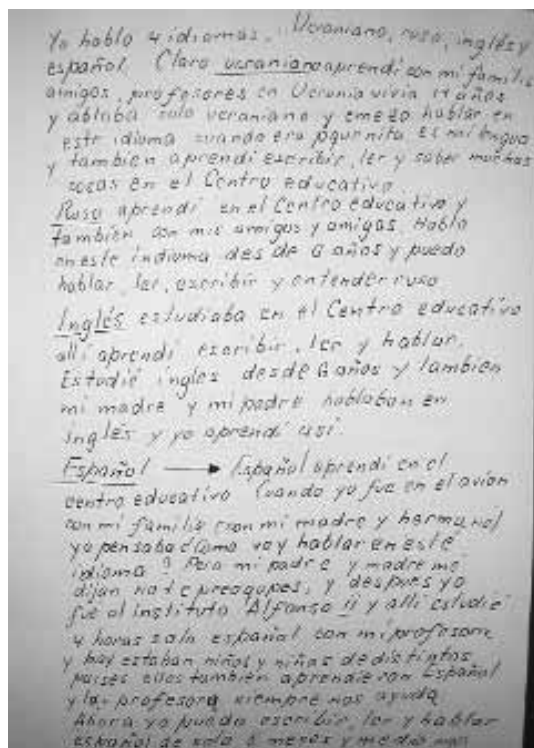 Yo hablo 4 idiomas. Ucraniano, ruso, inglés y
español. Claro ucraniano aprendi con mi familia
amigos, profesores en Ucrania vivia 14 años
y ablaba solo ucraniano y emezo hablar en
este idioma cuando era pquenita es mi lengua
y tambien aprendi escribir, ler y saber muchas
socas en el Centro educativo
Ruso aprendi en el Centro educativo y
también con mis amigos y amigas. Hablo
en este indioma des de 6 años y puedo
hablar, ler, escribir y entender ruso
Inglés estudiaba en el Centro educativo
alli aprendi escribir, ler y hablar.
Estudié ingles desde 6 años y tambien
mi madre y mi padre hablaban en
inglés y yo aprendi asi.
Español → Español aprendi en el
centro educativo Cuando yo fue en el avion
con mi familia (con mi madre y hermano)
yo pensaba ¿Como voy hablar en este
idioma? Pero mi padre y madre me
dijan no te preoqupes, y despues yo
fue al instituto Alfonso II y alli estudié
4 horas solo español con mi profesora
y hay estaban niños y niñas de distintos
paises ellos también aprendieron Español
y la profesora siempre nos ayuda
Ahora yo puedo escribir, ler y hablar
español de solo 6 meses y medio